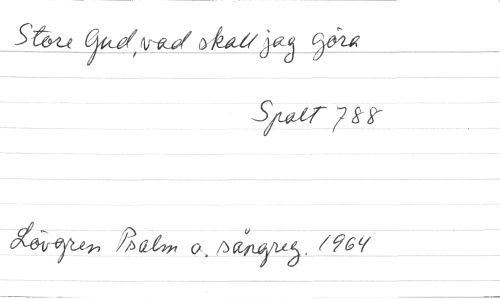 Store Gud, vad skall jag göra
Spalt 788
Lövgren Psalm o. sångreg. 1964